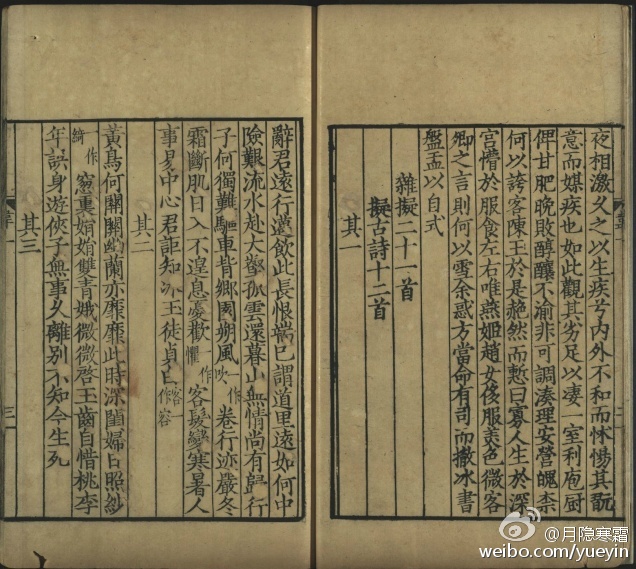 夜相激久之以生疾兮内外不和而怵惕其翫
意而媒疾也如此觀其劣足以凄一室利庖厨
俾甘肥晚敗醇釀不渝非可調湊理安營魄柰
何以誇客陳王於是赩然而慙曰寡人生於深
宫懵於服食左右唯燕姬趙女侈服美色微客
卿之言則何以雪余惑方當命有司而撤冰書
盤盂以自式
雜擬二十一首
擬古詩十二首
其一
辭君遠行邁飲此長恨端已謂道里遠如何中
險艱流水赴大壑孤雲還暮山無情尚有歸行
子何獨難驅車背鄉園朔風一作吹卷行迹嚴冬
霜斷肌日入不遑息憂歡一作懼客髮變寒暑人
事易中心君詎知冰玉徒貞白
其二
黃鳥何關關幽蘭亦靡靡此時深閨婦日照紗
一作綺窓裏娟娟雙青娥微微啓玉齒自惜桃李
年誤身遊俠子無事久離別不知今生死
其三
@月隐寒霜
weibo.com/yueyin